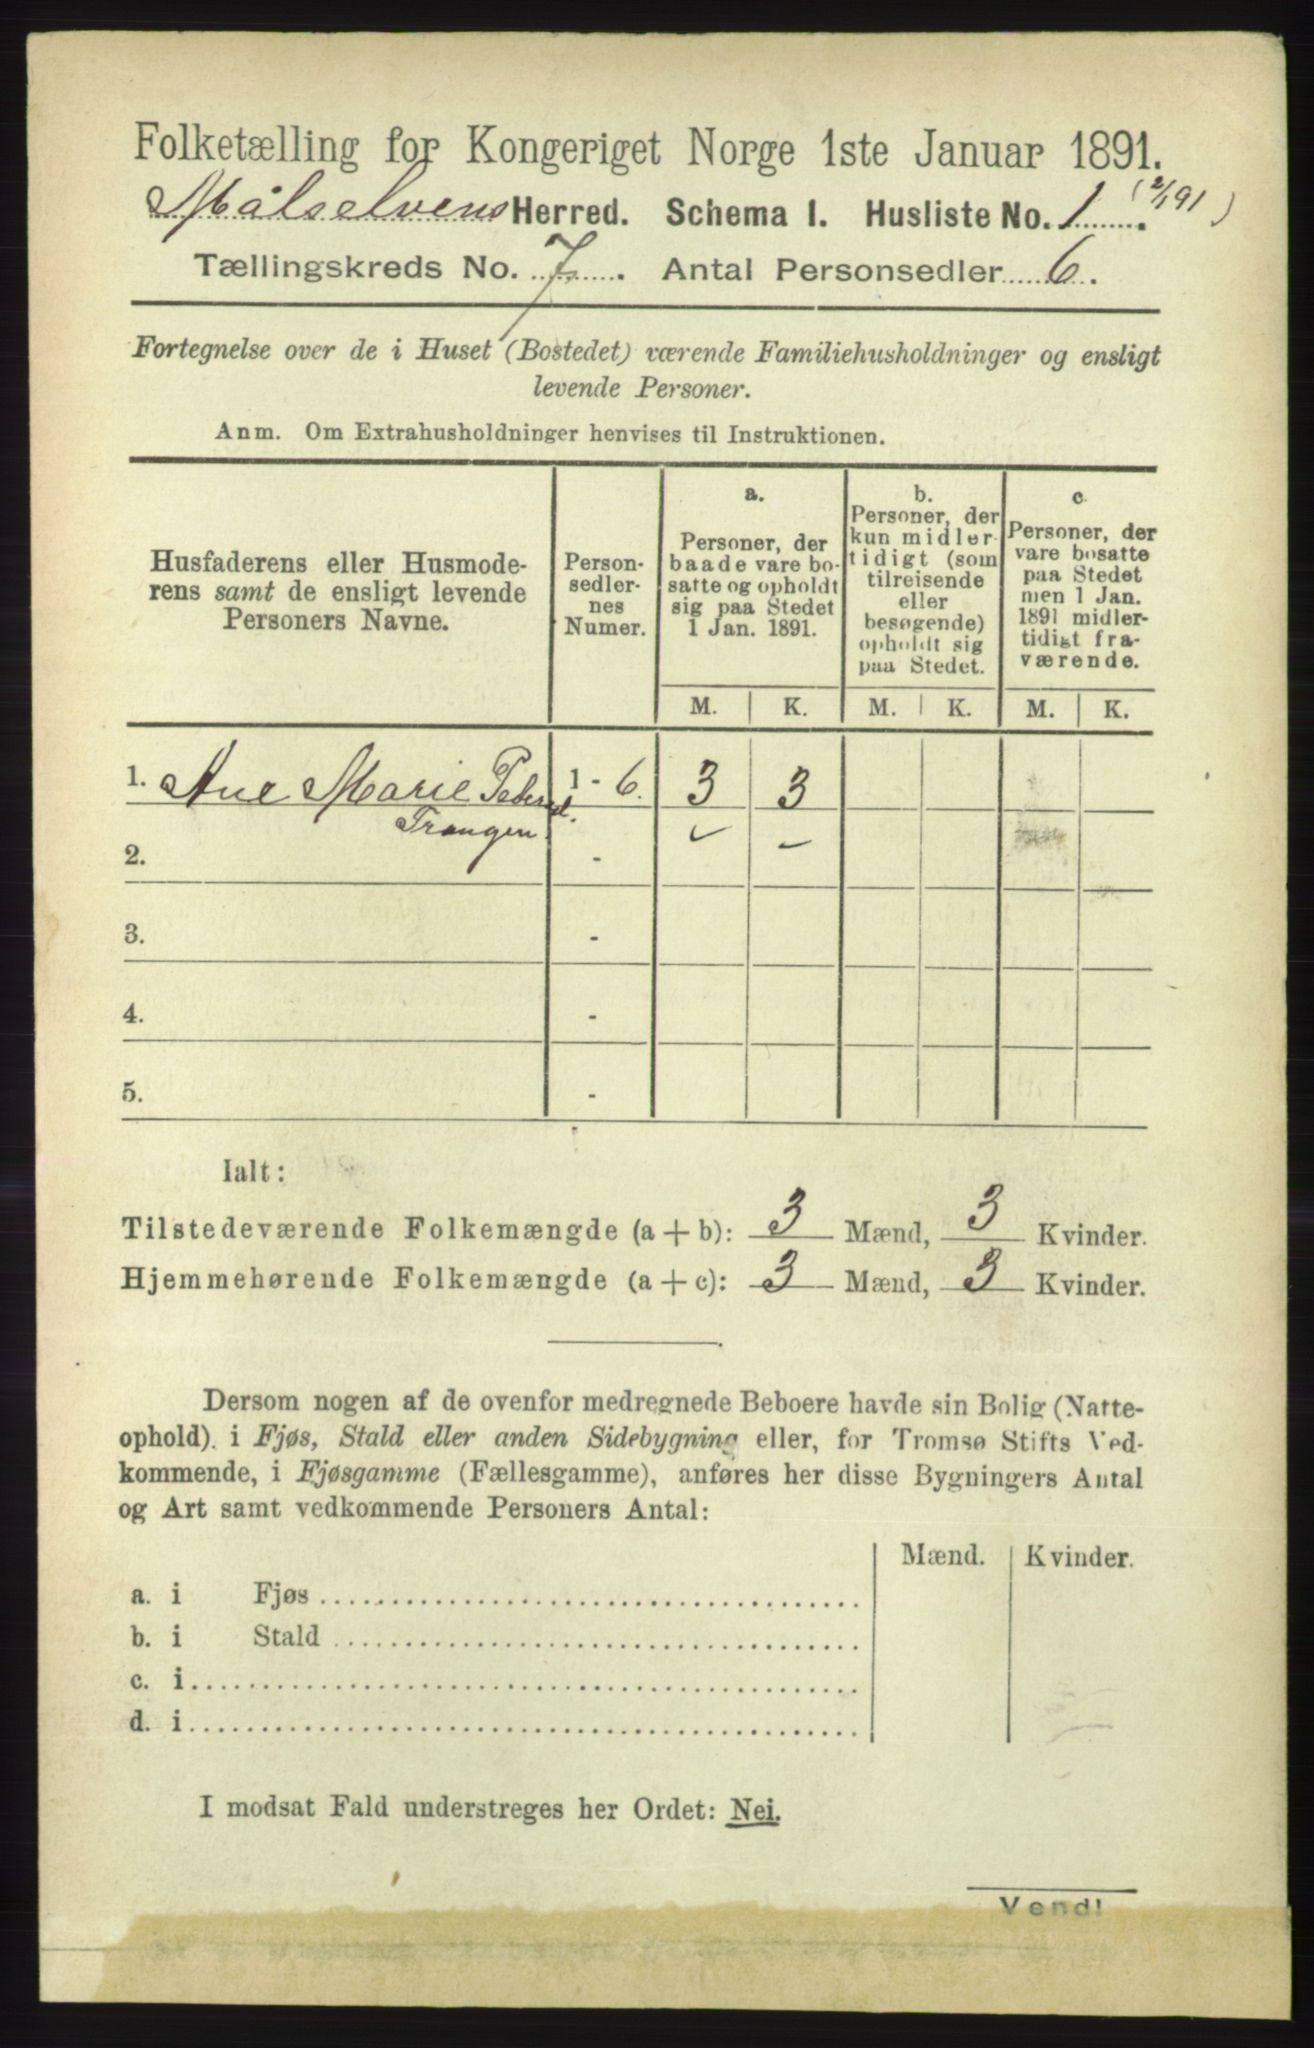 Folketælling for Kongeriget Norge 1ste Januar 1891.
Målselvens Herred. Schema I. Husliste No. 1 (2/1 91)
Tællingskreds No. 7. Antal Personsedler 6.
Fortegnelse over de i Huset (Bostedet) værende Familiehusholdninger og ensligt
levende Personer.
Anm. Om Extrahusholdninger henvises til Instruktionen.
Husfaderens eller Husmode-
rens samt de ensligt levende
Personers Navne.
Person-
sedler-
nes
Numer.
a.
Personer, der
baade vare bo-
satte og opholdt
sig paa Stedet
1 Jan. 1891.
b.
Personer, der
kun midler-
tidigt (som
tilreisende
eller
besøgende)
opholdt sig
paa Stedet.
c.
Personer, der
vare bosatte
paa Stedet
men 1 Jan.
1891 midler-
tidigt fra-
værende.
M. K. M. K. M. K.
1. Ane Marie Pedersd. 1 - 6. 3 3
Trangen
2. -
3. -
4. -
5. -
Ialt:
Tilstedeværende Folkemængde (a + b): 3 Mænd, 3 Kvinder.
Hjemmehørende Folkemængde (a + c): 3 Mænd, 3 Kvinder.
Dersom nogen af de ovenfor medregnede Beboere havde sin Bolig (Natte-
ophold) i Fjøs, Stald eller anden Sidebygning eller, for Tromsø Stifts Ved-
kommende, i Fjøsgamme (Fællesgamme), anføres her disse Bygningers Antal
og Art samt vedkommende Personers Antal:
Mænd. Kvinder.
a. i Fjøs
b. i Stald
c. i
d. i
I modsat Fald understreges her Ordet: Nei.
Vend!